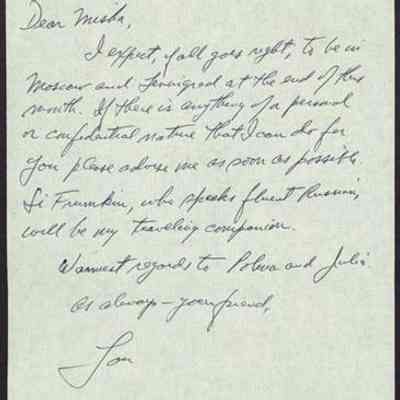 Dear Misha,
I expect, if all goes right, to be in
Moscow and Leningrad at the end of this
month. If there is anything of a personal
or confidential nature that I can do for
you please advise me as soon as possible.
Si Frumkin, who speaks fluent Russian,
will be my traveling companion.
Warmest regards to Polina and Julia
As always — your friend,
Lou